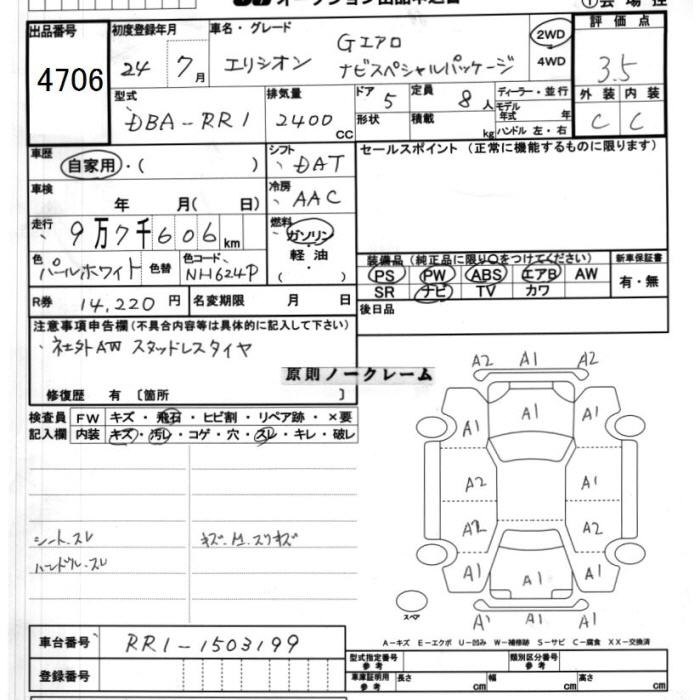 オークション出品申込書
①会場控
出品番号 4706
初度登録年月 24 7月
車名・グレード エリシオン Gエアロ ナビスペシャルパッケージ
2WD
4WD
評価点 3.5
外装 内装
C C
型式 DBA-RR1
排気量 2400 CC
ドア 5
形状
定員 8人
積載 kg
ディーラー・並行
モデル年式 年
ハンドル 左・右
車歴 自家用・( )
シフト DAT
セールスポイント(正常に機能するものに限ります)
車検 年 月( 日)
冷房 AAC
走行 9万7千606km
燃料 ガソリン・軽油・( )
色 パールホワイト 色替
色コード NH624P
装備品(純正品に限り○をつけてください)
PS PW ABS エアB AW
SR ナビ TV カワ
新車保証書
有・無
R券 14,220円
名変期限 月 日
後日品
注意事項申告欄(不具合内容等は具体的に記入して下さい)
社外AW スタッドレスタイヤ
原則ノークレーム
修復歴 有〔箇所 〕
検査員記入欄
FW キズ・飛石・ヒビ割・リペア跡・×要
内装 キズ・汚レ・コゲ・穴・スレ・キレ・破レ
シート.スレ
ハンドル.スレ
A2 A1 A2
A1 A1 A1
A2 A1
A2 A2
A1 A1 A1
A1 A1 A1
スペア
A-キズ E-エクボ U-凹み W-補修跡 S-サビ C-腐食 XX-交換済
車台番号 RR1-1503199
登録番号
型式指定番号 参考
類別区分番号 参考
車庫証明用 参考
長さ cm
幅 cm
高さ cm